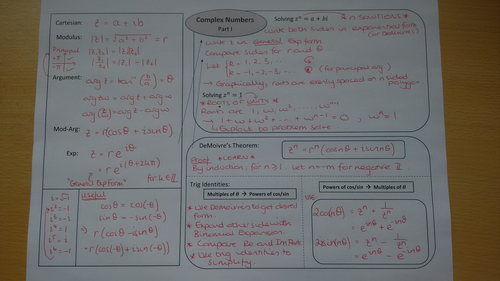 Cartesian: z = a + ib
Modulus: |z| = √a² + b² = r
Principal |z₁z₂| = |z₁||z₂|
Argument:
arg z = tan⁻¹(b/a) = θ
arg zw = arg z + arg w
arg(z/w) = arg z - arg w
Mod-Arg: z = r(cosθ + isinθ)
Exp: z = re^iθ
"General Exp Form"
for k∈ℤ
i = √-1
i² = -1
i³ = -i
i⁴ = 1
Useful
cosθ = cos(-θ)
sinθ = -sin(-θ)
r(cosθ - isinθ)
= r(cos(-θ) + isin(-θ))
Complex Numbers
Part I
Solving zⁿ = a + bi
* n SOLUTIONS *
Write both sides in exponential form
(or DeMoivre's)
Write 1 in General Exp form
Compare sides for r and θ
Let k = 1, 2, 3, ...
k = -1, -2, -3, ...
(for principal arg)
→ Graphically, roots are equally spaced on n sided polygon
Solving zⁿ = 1
* ROOTS OF UNITY *
Roots are 1, ω, ω², ... ωⁿ⁻¹
→ 1 + ω + ω² + ... + ωⁿ⁻¹ = 0, ωⁿ = 1
Exploit to problem solve
DeMoivre's Theorem:
zⁿ = rⁿ(cosnθ + isinnθ)
Proof * LEARN *
By induction, for n≥1. Let n=-m for negative ℤ
Trig Identities:
Multiples of θ → Powers of cos/sin
* Use DeMoivre to get desired form
* Expand other side with Binomial Expansion.
* Compare Re and Im Parts
* Use trig identities to simplify.
Powers of cos/sin → Multiples of θ
USE
2cos(nθ) = zⁿ + 1/zⁿ
= e^inθ + e^-inθ
2isin(nθ) = zⁿ - 1/zⁿ
= e^inθ - e^-inθ